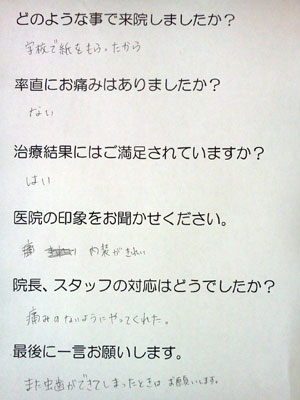 どのような事で来院しましたか？
学校で紙をもらったから
率直にお痛みはありましたか？
ない
治療結果にはご満足されていますか？
はい
医院の印象をお聞かせください。
内装がきれい
院長、スタッフの対応はどうでしたか？
痛みのないようにやってくれた。
最後に一言お願いします。
また虫歯ができてしまったときはお願いします。